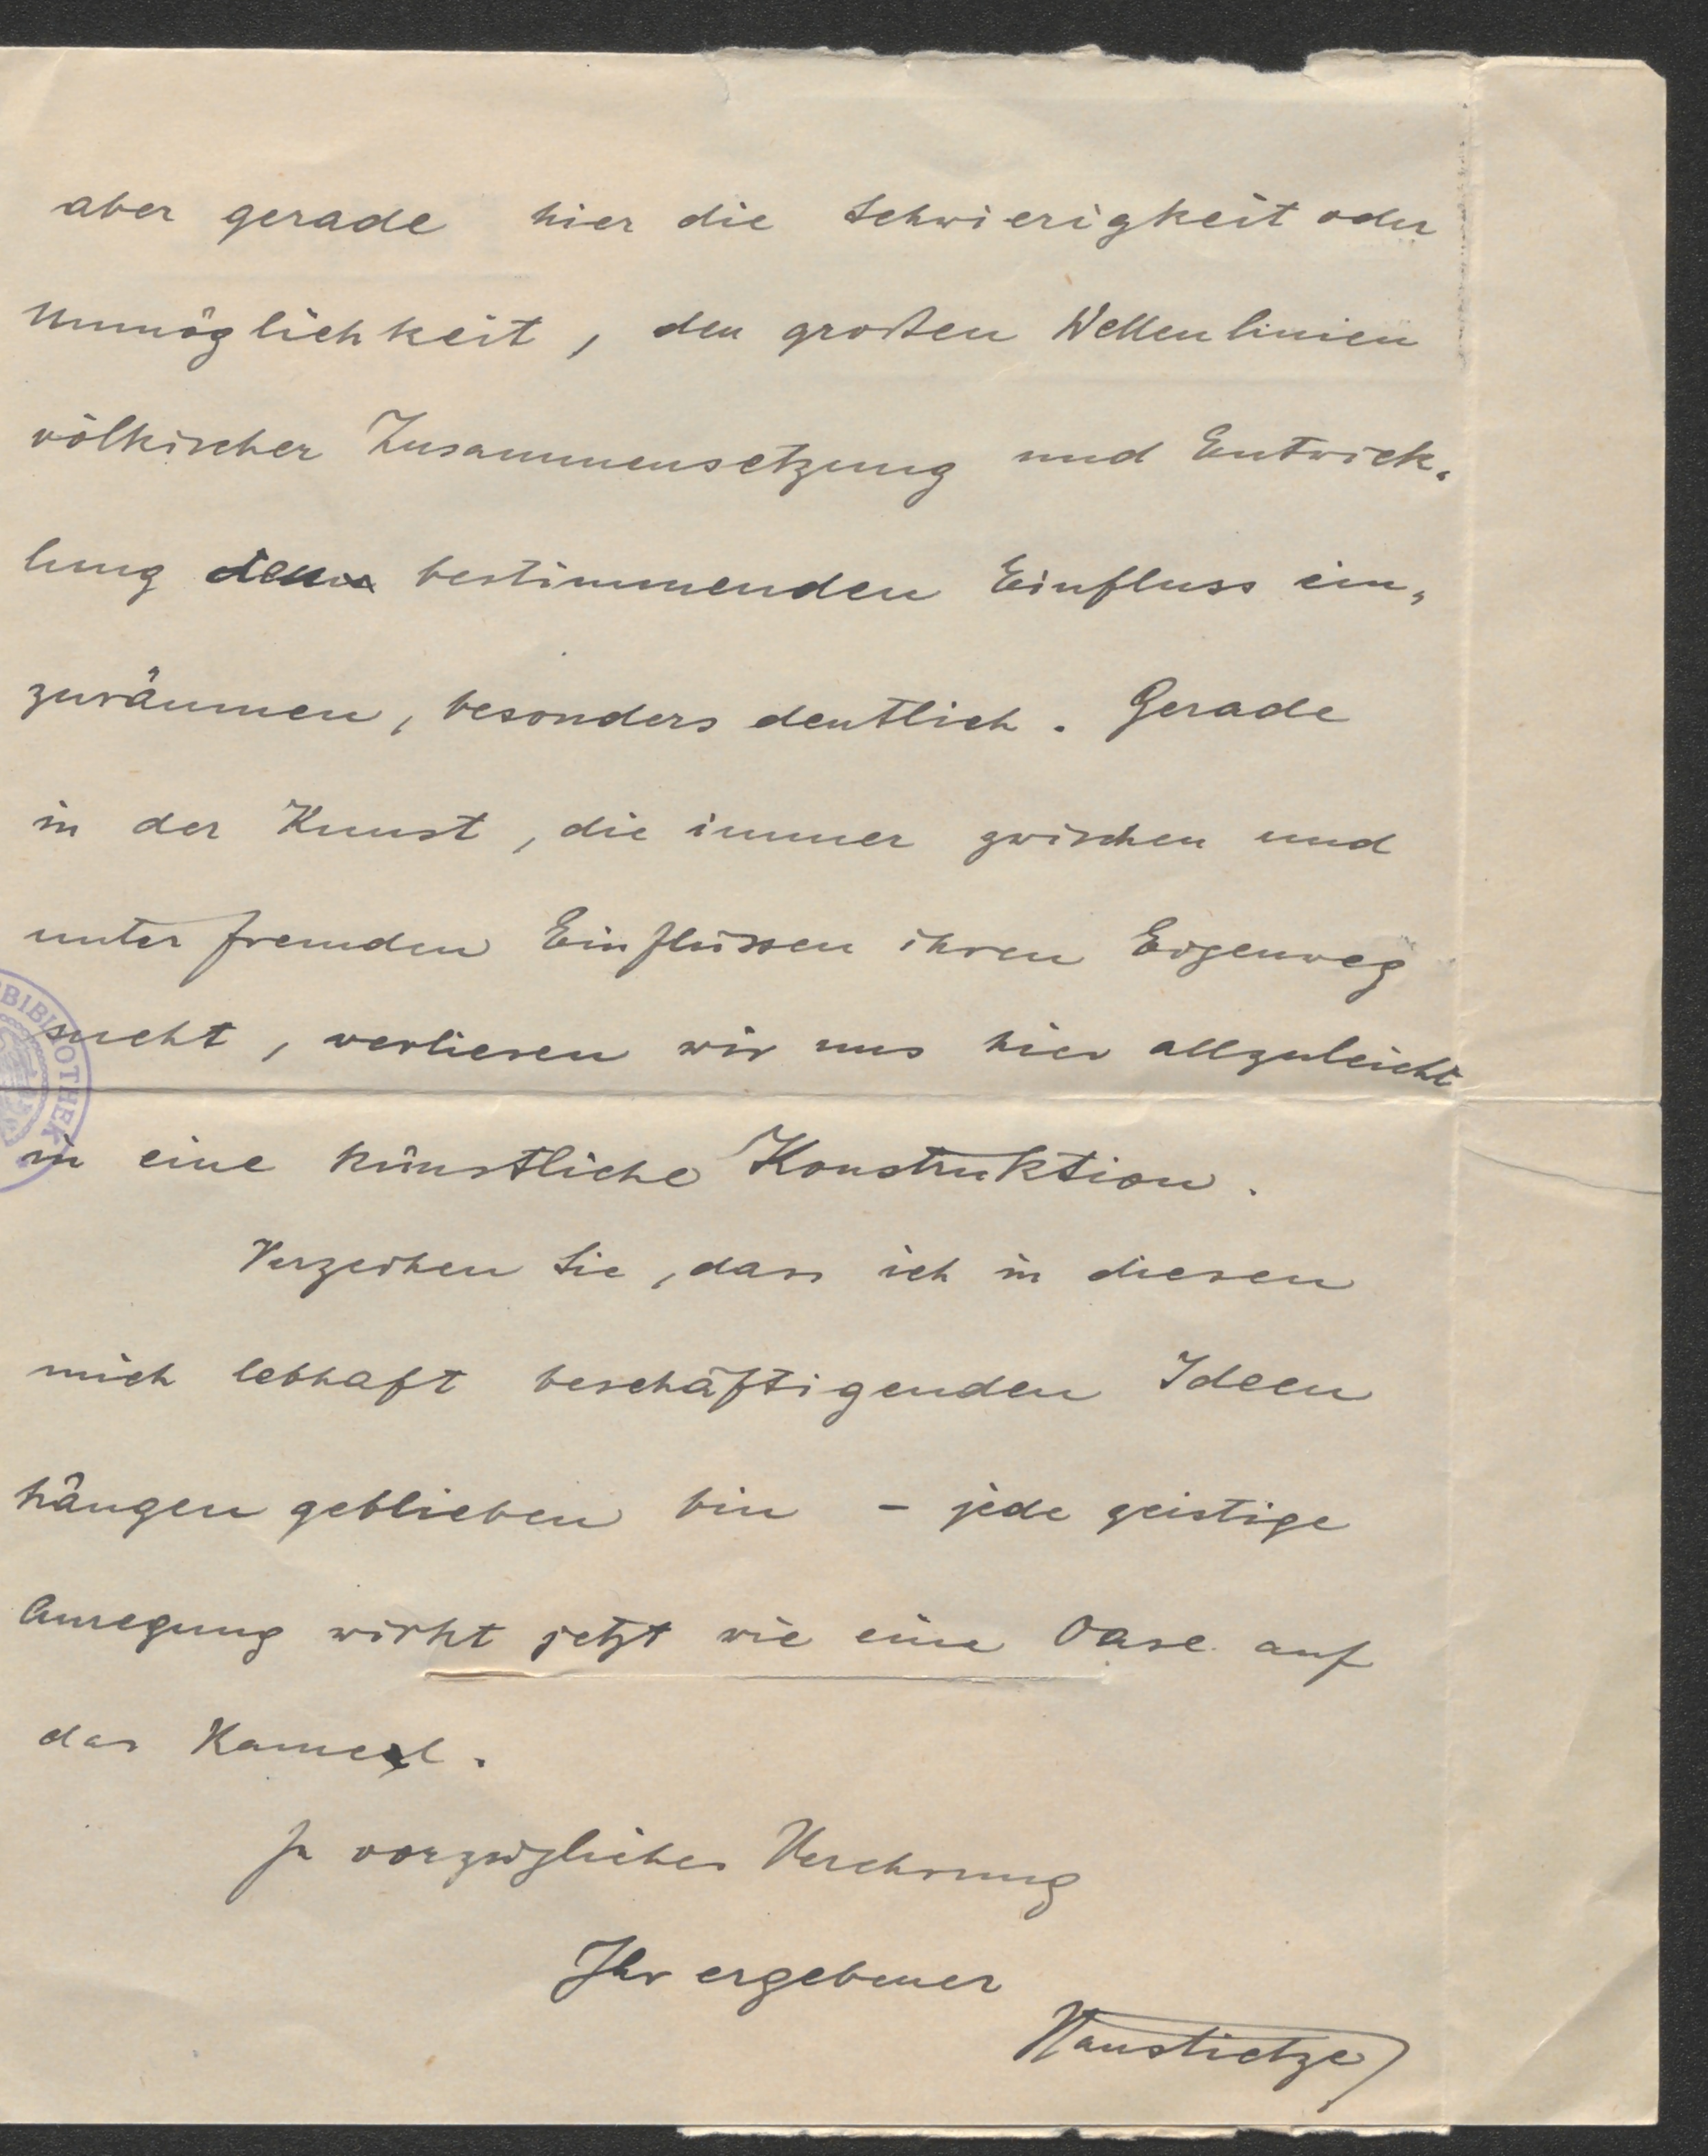 aber gerade hier die Schwierigkeit oder
Unmöglichkeit, den großen Wellenlinien
völkischer Zusammensetzung und Entwick-
lung den bestimmenden Einfluss ein-
zuräumen, besonders deutlich. Gerade
in der Kunst, die immer zwischen und
unter fremden Einflüssen ihren Eigenweg
sucht, verlieren wir uns hier allzuleicht
in eine künstliche Konstruktion.
BIBLIOTHEK
Verzeihen Sie, dass ich in diesen
mich lebhaft beschäftigenden Ideen
hängen geblieben bin – jede geistige
Anregung wirkt jetzt wie eine Oase auf
das Kamel.
In vorzüglicher Verehrung
Ihr ergebener
Hans Tietze